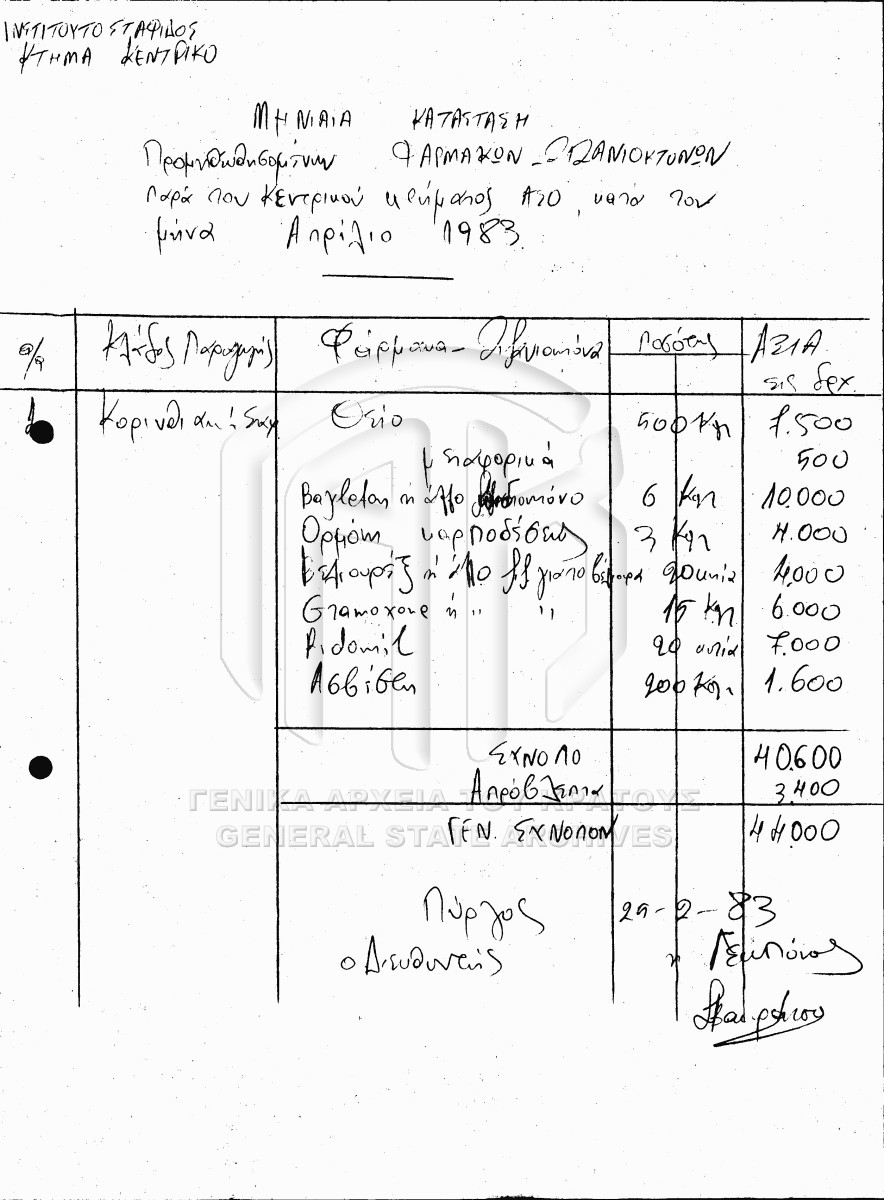 ΙΝΣΤΙΤΟΥΤΟ ΣΤΑΦΙΔΟΣ
ΚΤΗΜΑ ΚΕΝΤΡΙΚΟ
ΜΗΝΙΑΙΑ ΚΑΤΑΣΤΑΣΗ
ΦΑΡΜΑΚΩΝ - ΖΙΖΑΝΙΟΚΤΟΝΩΝ
παρά του Κεντρικού κτήματος ΑΣΟ, κατά τον
μήνα Απρίλιο 1983
α/α Κλάδος Παραγωγής Φάρμακα - Ζιζανιοκτόνα Ποσότης ΑΞΙΑ
εις δρχ.
1 Κορινθιακή σταφ Θείο 500 Κγρ 7.500
μεταφορικά 500
Bayleton ή άλλο 6 Κγρ 10.000
Ορμόνη καρποδέσεως 3 Κγρ 4.000
ή άλλο για το 20 κυτία 4.000
Gramoxone ή " " 15 Κγρ 6.000
Ridomil 20 κυτία 7.000
Ασβέστη 200 Κγρ. 1.600
ΣΥΝΟΛΟ 40.600
Απρόβλεπτα 3.400
ΓΕΝΙΚΑ ΑΡΧΕΙΑ ΤΟΥ ΚΡΑΤΟΥΣ
GENERAL STATE ARCHIVES
ΓΕΝ. ΣΥΝΟΛΟΝ 44.000
Πύργος 29-2-83
ο Διευθυντής η Γεωπόνος